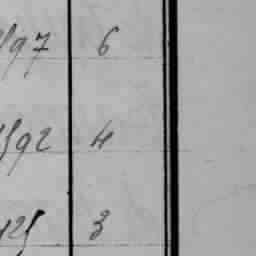 97 6
592 4
125 3